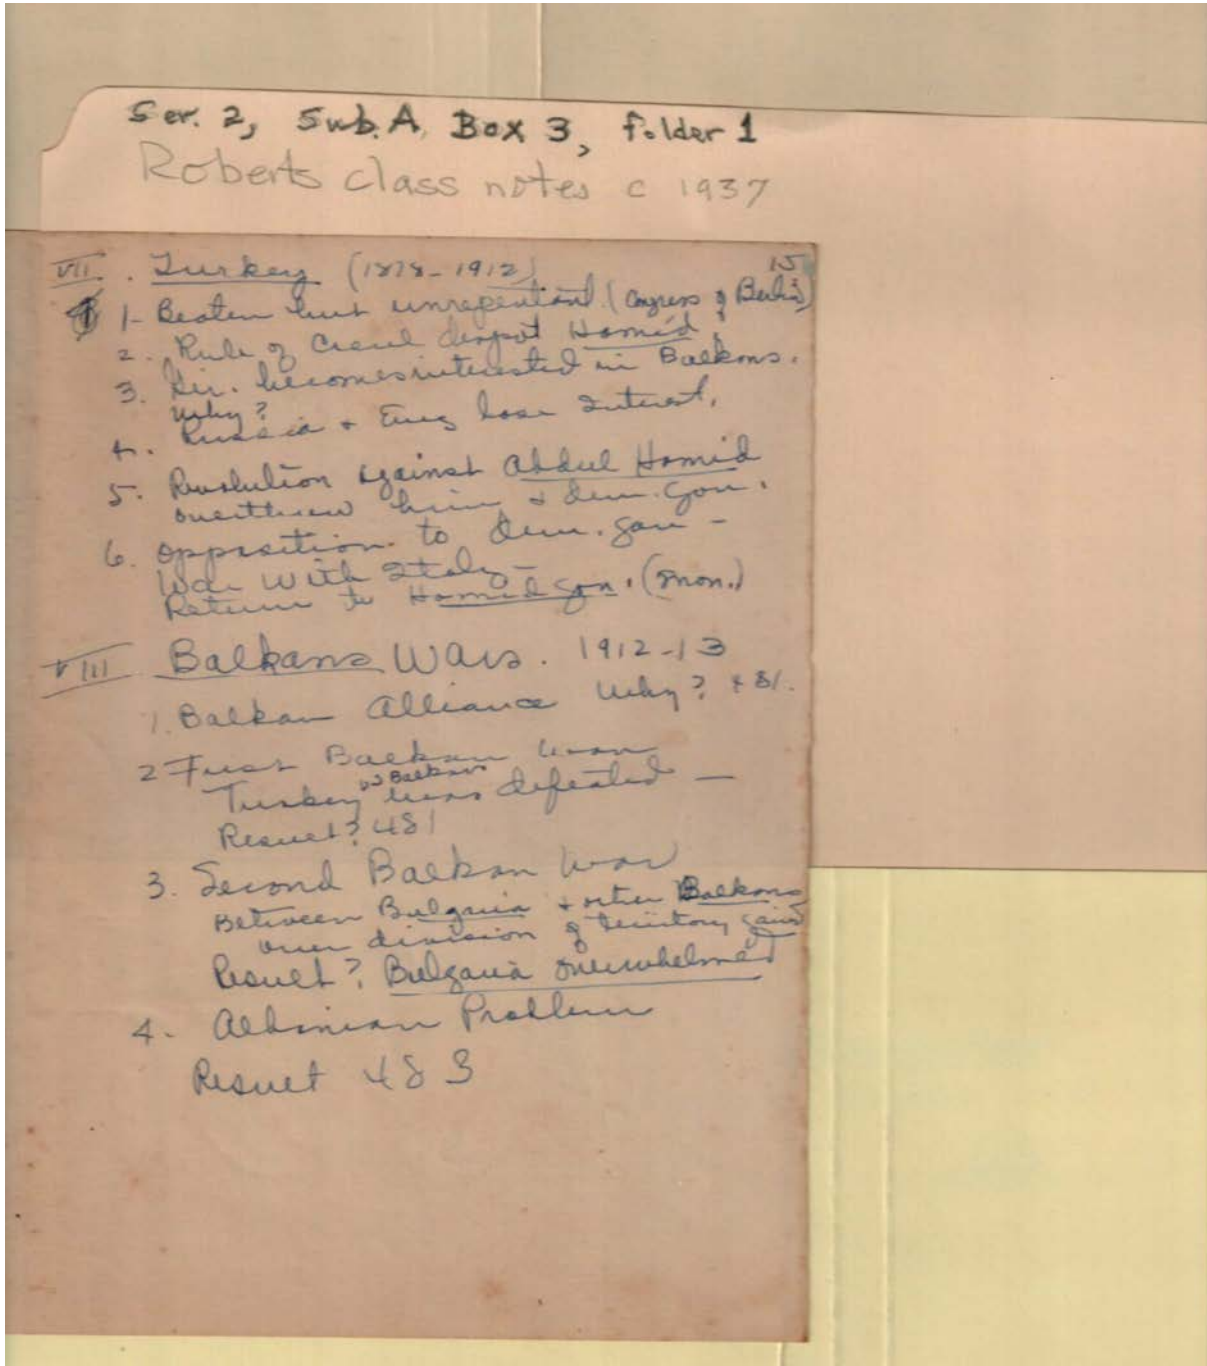 Ser. 2, Sub. A, Box 3, folder 1
Roberts class notes c 1937
15
VII. Turkey (1878-1912)
1- Beaten but unrepentant. (Congress of Berlin)
2. Rule of Cruel despot Hamid.
3. becomes interested in Balkans.
Why?
4. Russia + Eng lose interest.
5. Revolution against Abdul Hamid
overthrew him + dem. gov.
6. opposition to dem. gov -
War with Italy -
Return to Hamid gov. (mon.)
VIII Balkans Wars. 1912-13
1. Balkan Alliance Why? 481.
2 First Balkan War
Turkey vs Balkans was defeated —
Result? 481
3. Second Balkan War
Between Bulgaria + other Balkans
over division of territory gain
Result? Bulgaria overwhelmed
4. Albanian Problem
Result 483